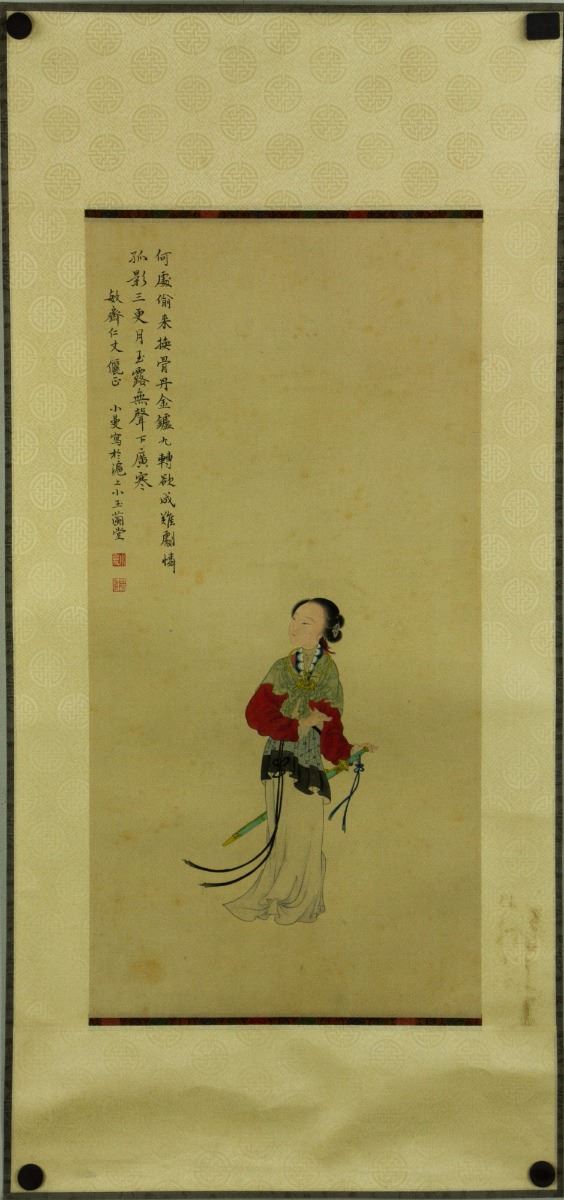 何處偷來換骨丹金鑪九轉欲成難劇憐
孤影三更月玉露無聲下廣寒
敏齋仁丈儷正
小曼寫於滬上小玉蘭堂